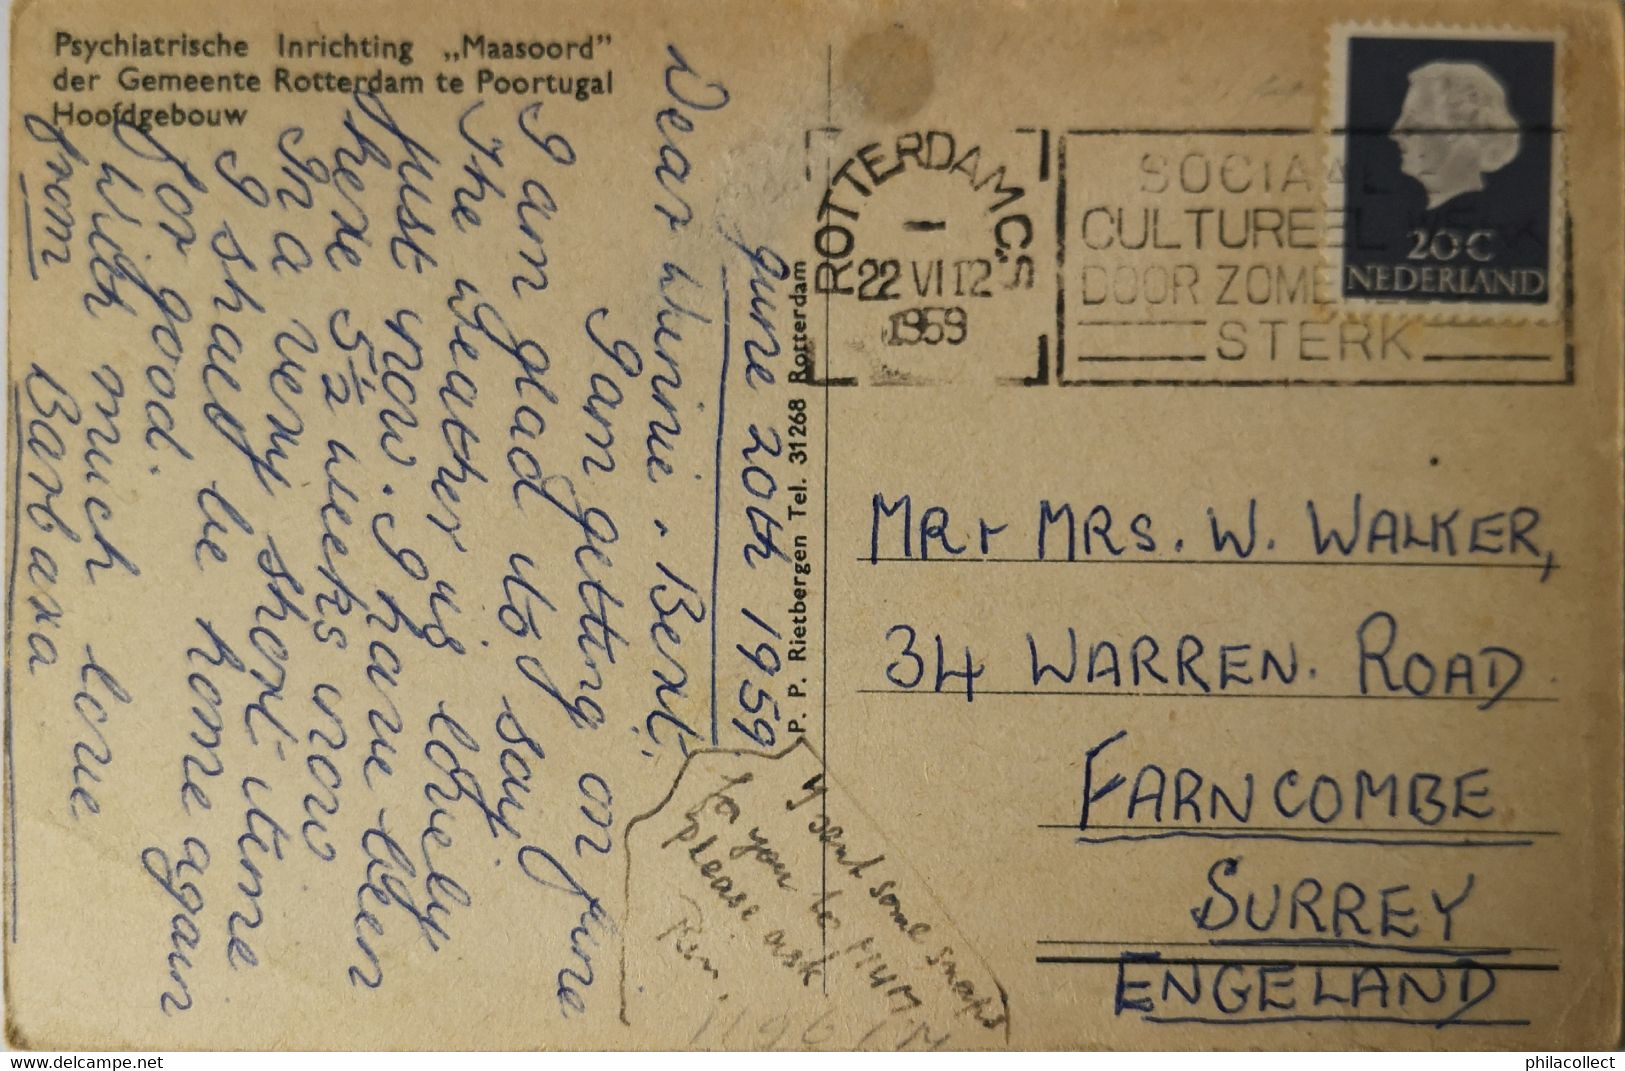 Psychiatrische Inrichting „Maasoord”
der Gemeente Rotterdam te Poortugal
Hoofdgebouw
June 20th 1959
Dear Winnie. Bert,
I am getting on fine
I am glad to say
The weather is lovely
just now. I have been
here 5½ weeks now
In a very short time
I shall be home again
for good.
With much love
from Barbara
I sent some snaps
for you to MUM
please ask
Rin.
P. P. Rietbergen Tel. 31268 Rotterdam
ROTTERDAM C.S
22 VI 12
1959
SOCIAAL
CULTUREEL WERK
DOOR ZOMERZEGELS
STERK
20C
NEDERLAND
MR + MRS. W. WALKER,
34 WARREN. ROAD
FARNCOMBE
SURREY
ENGELAND
philacollect